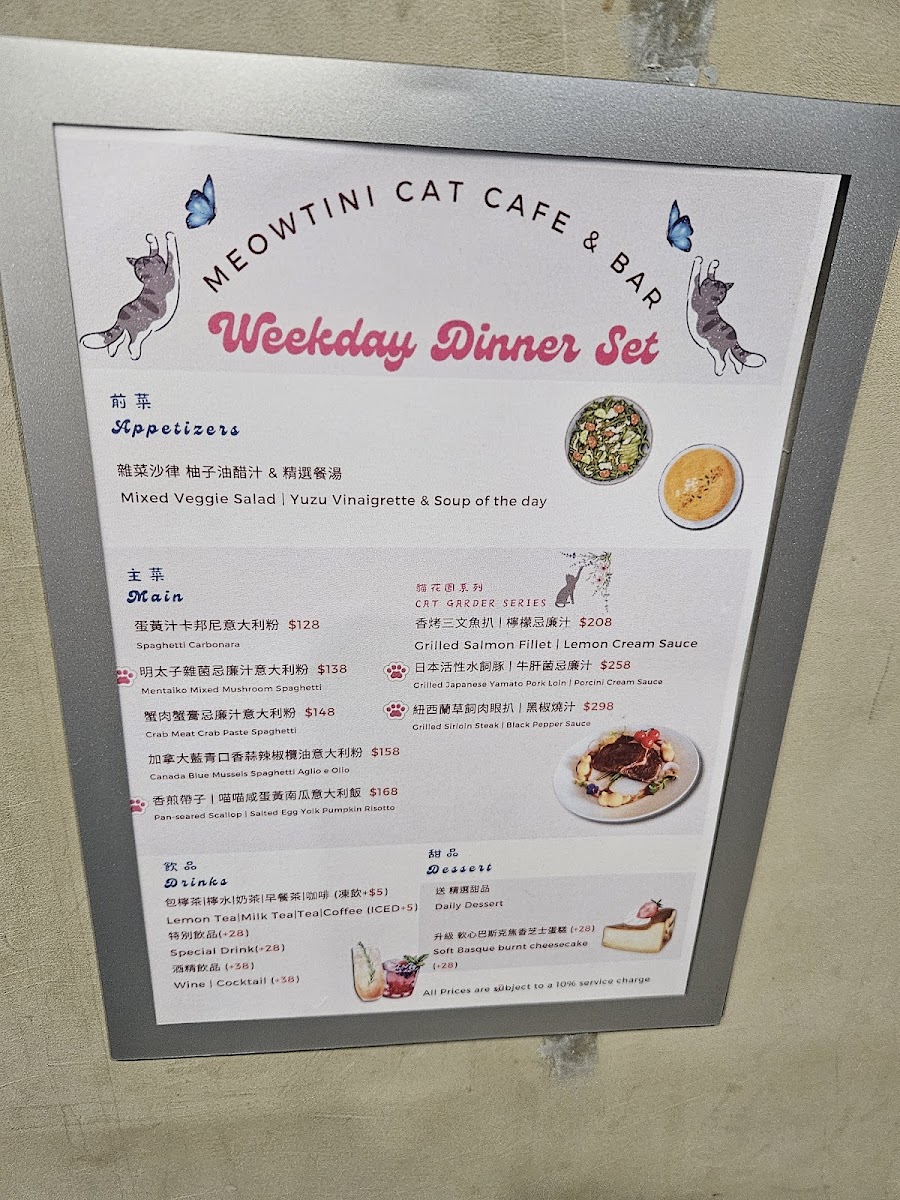 MEOWTINI CAT CAFE & BAR
Weekday Dinner Set
前菜
Appetizers
雜菜沙律 柚子油醋汁 & 精選餐湯
Mixed Veggie Salad | Yuzu Vinaigrette & Soup of the day
主菜
Main
蛋黃汁卡邦尼意大利粉 $128
Spaghetti Carbonara
明太子雜菌忌廉汁意大利粉 $138
Mentaiko Mixed Mushroom Spaghetti
蟹肉蟹膏忌廉汁意大利粉 $148
Crab Meat Crab Paste Spaghetti
加拿大藍青口香蒜辣椒欖油意大利粉 $158
Canada Blue Mussels Spaghetti Aglio e Olio
香煎帶子 | 喵喵咸蛋黃南瓜意大利飯 $168
Pan-seared Scallop | Salted Egg Yolk Pumpkin Risotto
貓花園系列
CAT GARDER SERIES
香烤三文魚扒 | 檸檬忌廉汁 $208
Grilled Salmon Fillet | Lemon Cream Sauce
日本活性水飼豚 | 牛肝菌忌廉汁 $258
Grilled Japanese Yamato Pork Loin | Porcini Cream Sauce
紐西蘭草飼肉眼扒 | 黑椒燒汁 $298
Grilled Sirloin Steak | Black Pepper Sauce
飲品
Drinks
包檸茶|檸水|奶茶|早餐茶|咖啡 (凍飲+$5)
Lemon Tea|Milk Tea|Tea|Coffee (ICED+5)
特別飲品(+28)
Special Drink(+28)
酒精飲品 (+38)
Wine | Cocktail (+38)
甜品
Dessert
送 精選甜品
Daily Dessert
升級 軟心巴斯克焦香芝士蛋糕 (+28)
Soft Basque burnt cheesecake
(+28)
All Prices are subject to a 10% service charge